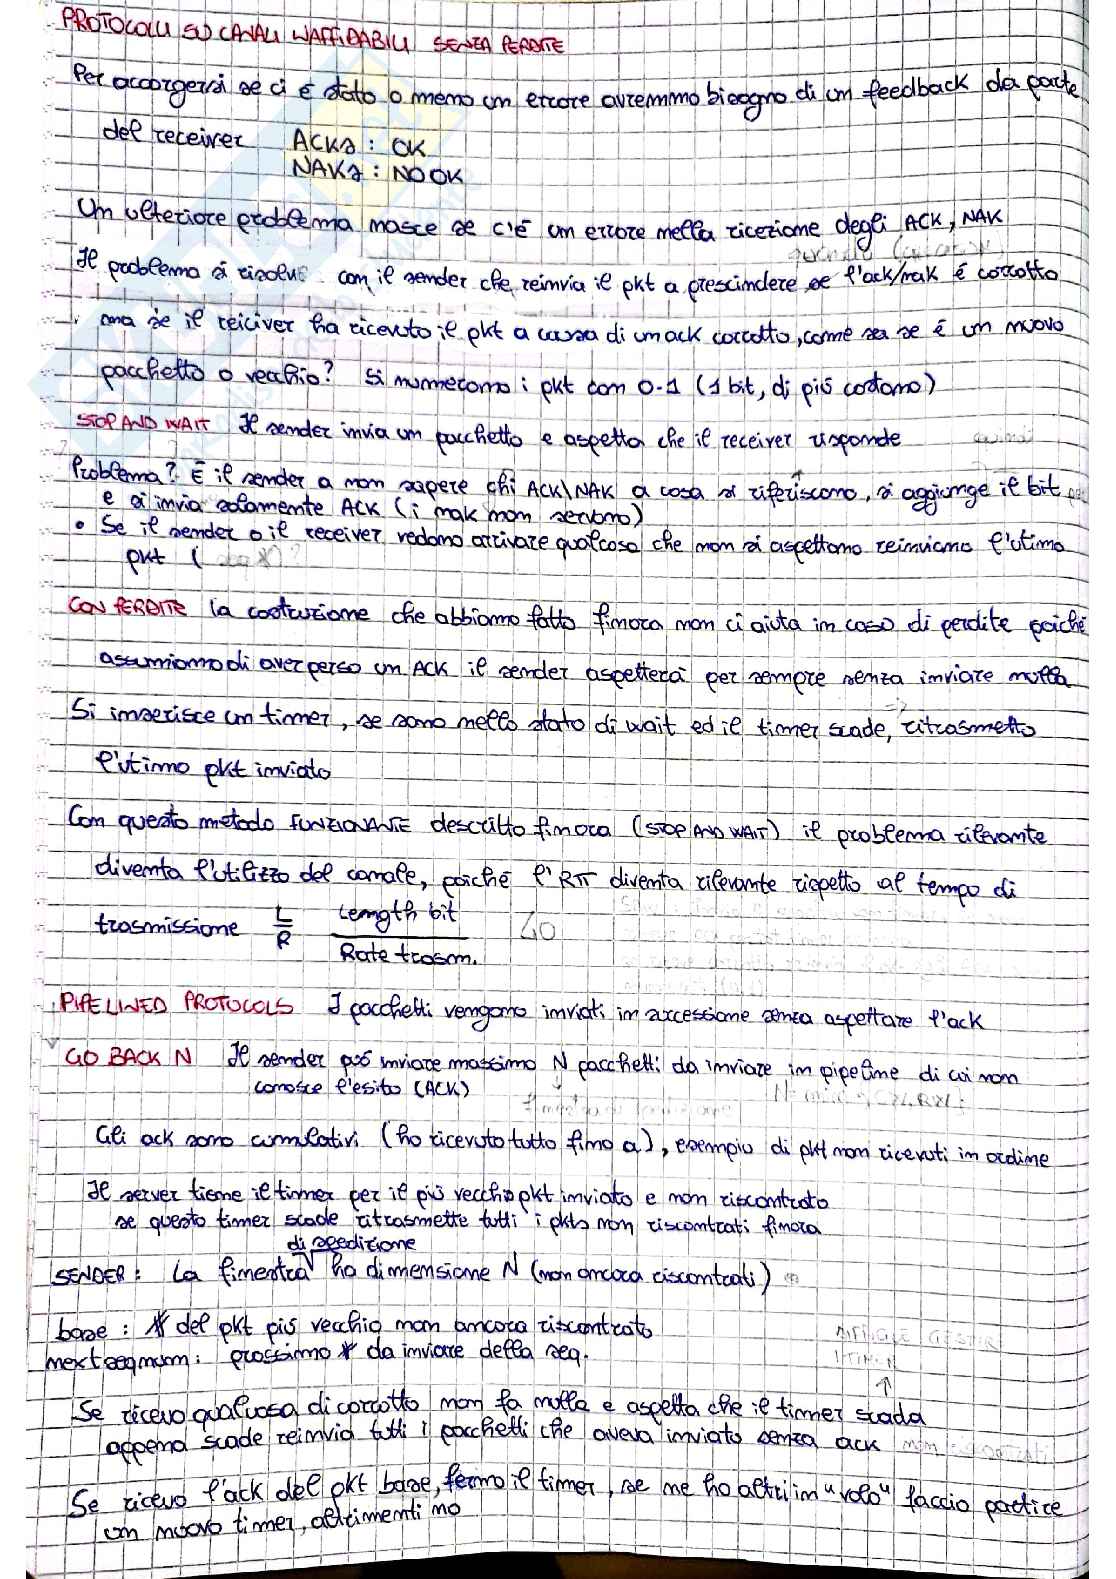 PROTOCOLLI SU CANALI INAFFIDABILI SENZA PERDITE
Per accorgersi se ci è stato o meno un errore avremmo bisogno di un feedback da parte
del receiver ACKs : OK
NAKs : NO OK
Un ulteriore problema nasce se c'è un errore nella ricezione degli ACK, NAK
Il problema si risolve con il sender che reinvia il pkt a prescindere se l'ack/nak è corrotto
ma se il reiciver ha ricevuto il pkt a causa di un ack corrotto, come sa se è un nuovo
pacchetto o vecchio? Si numerano i pkt con 0-1 (1 bit, di più costano)
STOP AND WAIT Il sender invia un pacchetto e aspetta che il receiver risponde
Problema? È il sender a non sapere chi ACK\NAK a cosa si riferiscono, si aggiunge il bit
e si invia solamente ACK (i nak non servono)
• Se il sender o il receiver vedono arrivare qualcosa che non si aspettano reinviano l'utimo
pkt (
CON PERDITE la costruzione che abbiamo fatto finora non ci aiuta in caso di perdite poiché
assumiamo di aver perso un ACK il sender aspetterà per sempre senza inviare nulla
Si inserisce un timer, se sono nello stato di wait ed il timer scade, ritrasmetto
l'utimo pkt inviato
Con questo metodo FUNZIONANTE descritto finora (STOP AND WAIT) il problema rilevante
diventa l'utilizzo del canale, poiché l'RTT diventa rilevante rispetto al tempo di
trasmissione L/R Length bit / Rate trasm.
PIPELINED PROTOCOLS I pacchetti vengono inviati in successione senza aspettare l'ack
GO BACK N Il sender può inviare massimo N pacchetti da inviare in pipeline di cui non
conosce l'esito (ACK)
Gli ack sono cumulativi (ho ricevuto tutto fino a), esempio di pkt non ricevuti in ordine
Il server tiene il timer per il più vecchio pkt inviato e non riscontrato
se questo timer scade ritrasmette tutti i pkts non riscontrati finora
di spedizione
SENDER : La finestra ha dimensione N (non ancora riscontrati)
base : # del pkt più vecchio non ancora riscontrato
nextseqnum : prossimo # da inviare della seq.
Se ricevo qualcosa di corrotto non fa nulla e aspetta che il timer scada
appena scade reinvia tutti i pacchetti che aveva inviato senza ack
Se ricevo l'ack del pkt base, fermo il timer, se ne ho altri in "volo" faccio partire
un nuovo timer, altrimenti no